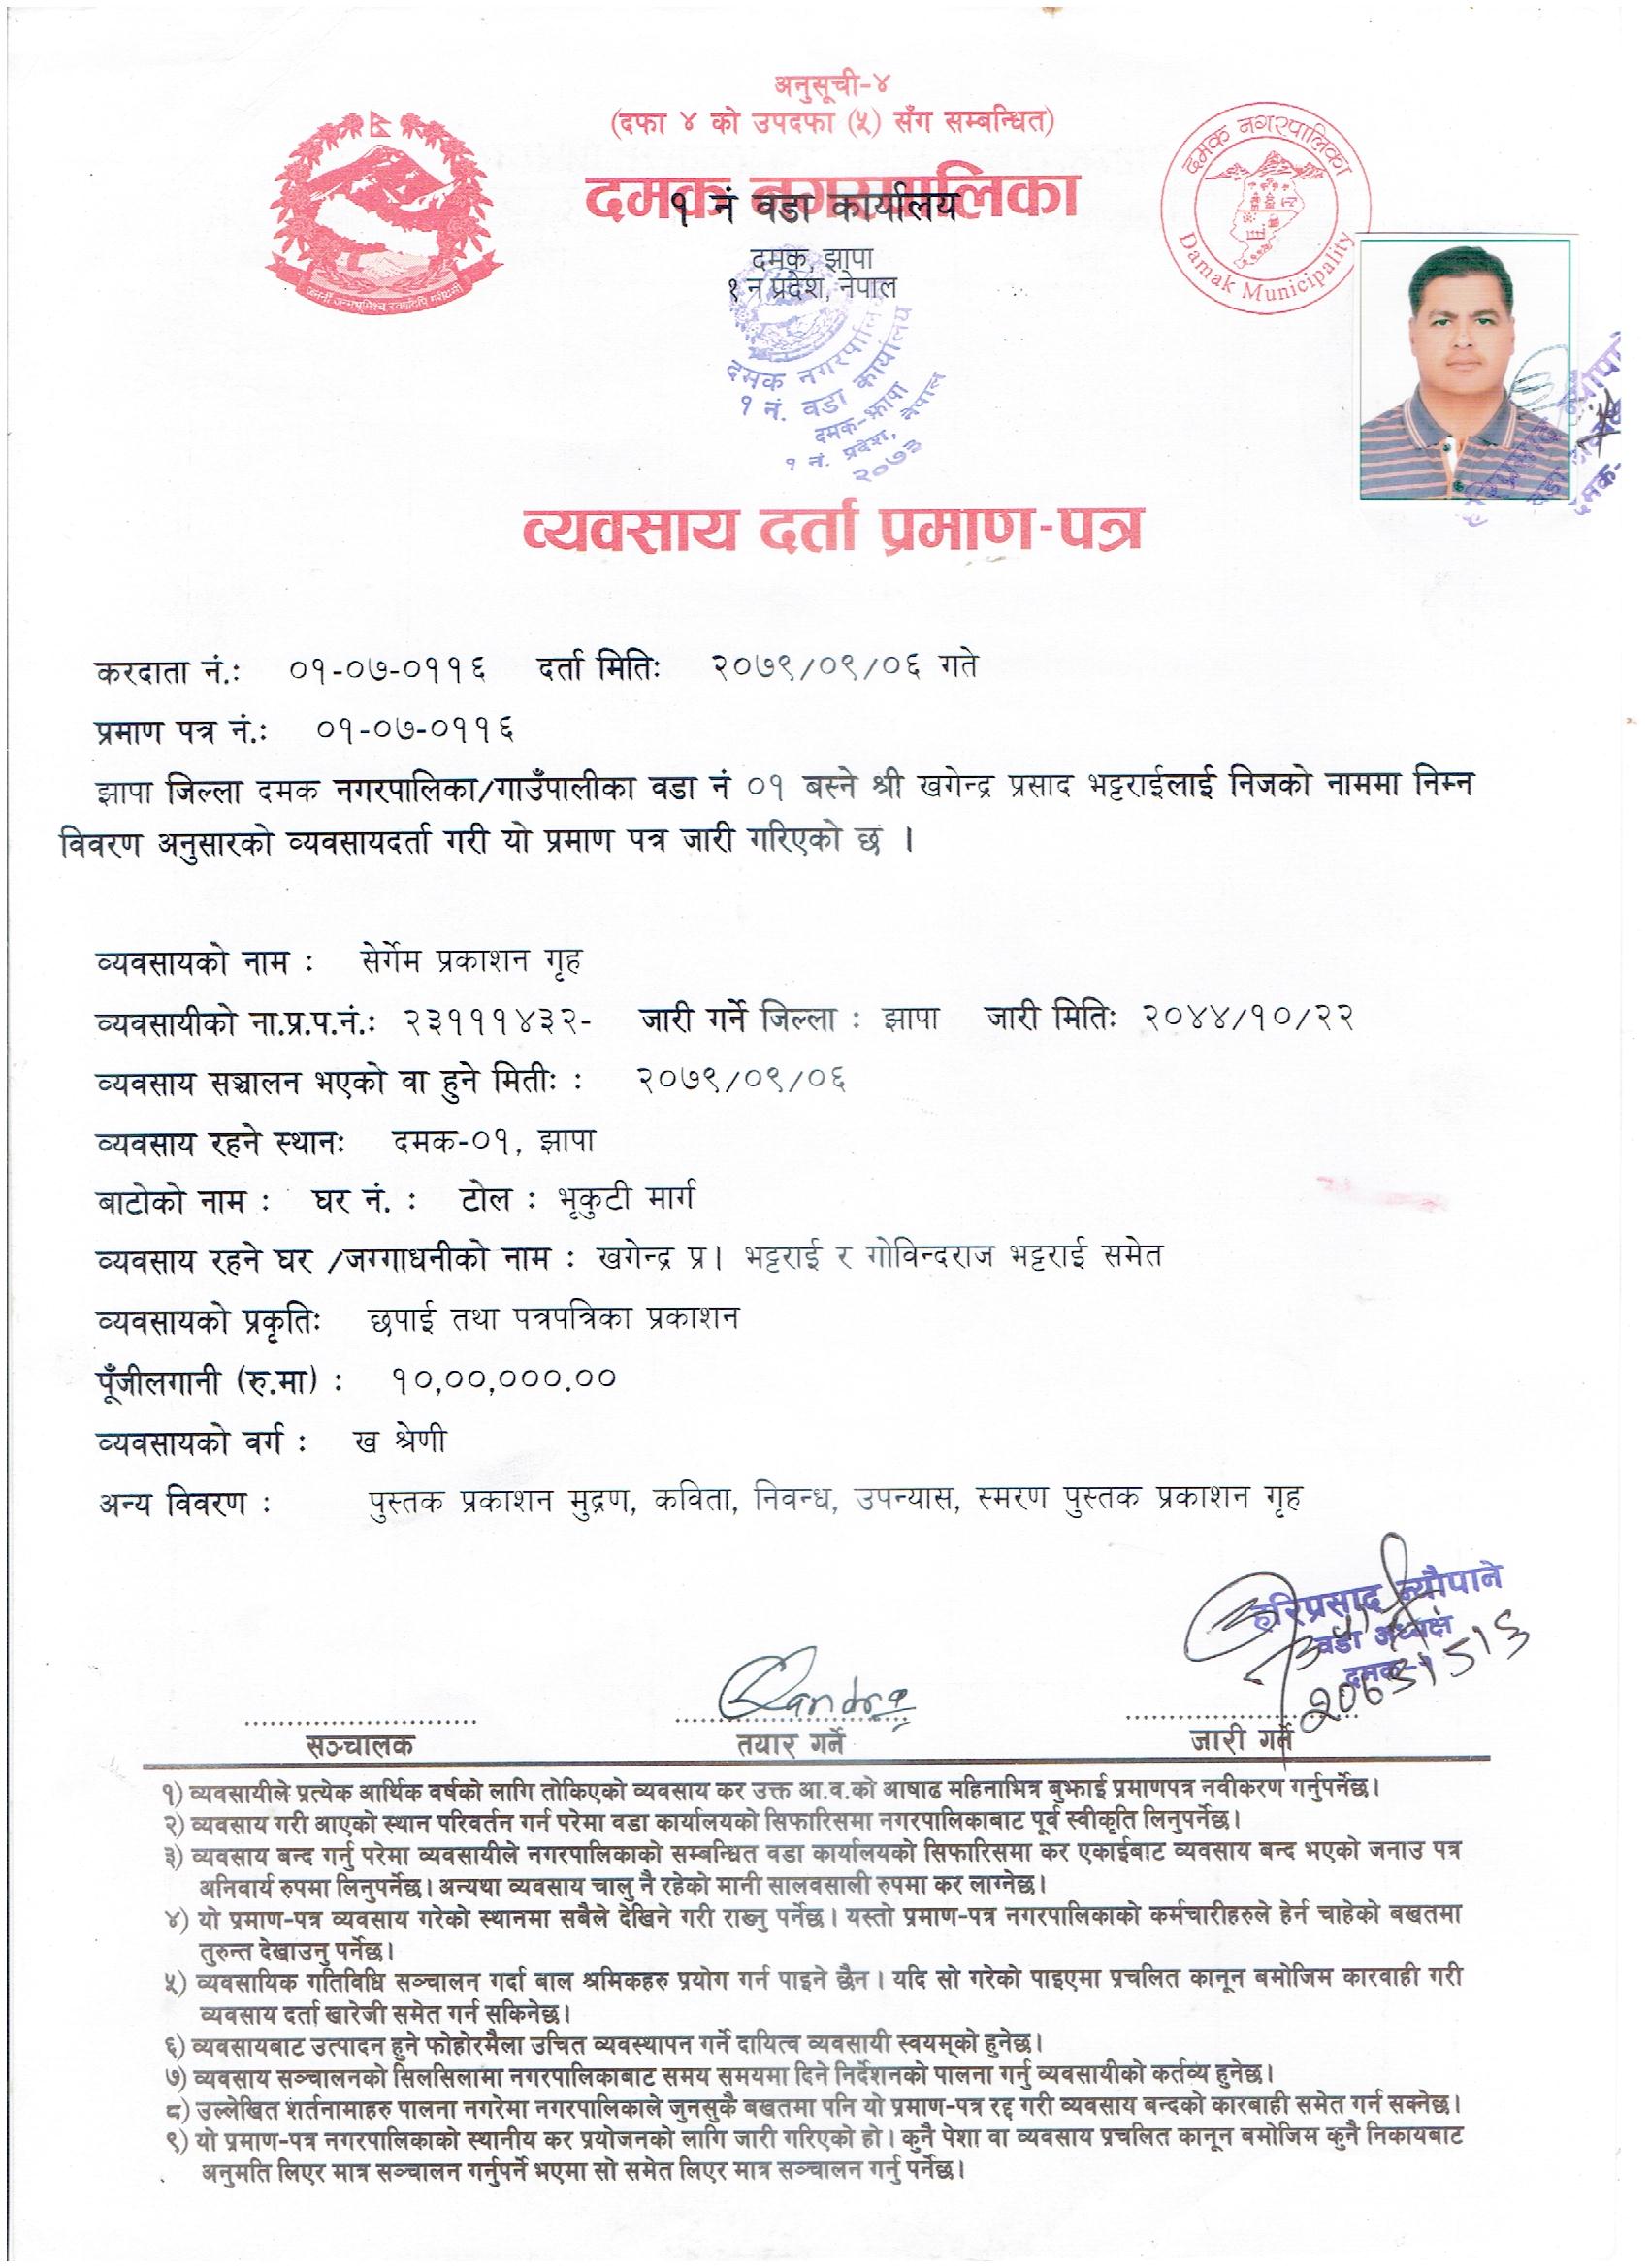 अनुसूची-४
(दफा ४ को उपदफा (५) सँग सम्बन्धित)
दमक नगरपालिका
१ नं वडा कार्यालय
दमक, झापा
१ न प्रदेश, नेपाल
जननी जन्मभूमिश्च स्वर्गादपि गरीयसी
दमक नगरपालिका
Damak Municipality
दमक नगरपालि
१ नं. वडा कार्यालय
दमक-झापा
१ नं. प्रदेश, नेपाल
२०७३
व्यवसाय दर्ता प्रमाण-पत्र
करदाता नं.: ०१-०७-०११६ दर्ता मितिः २०७९/०९/०६ गते
प्रमाण पत्र नं.: ०१-०७-०११६
झापा जिल्ला दमक नगरपालिका/गाउँपालीका वडा नं ०१ बस्ने श्री खगेन्द्र प्रसाद भट्टराईलाई निजको नाममा निम्न
विवरण अनुसारको व्यवसायदर्ता गरी यो प्रमाण पत्र जारी गरिएको छ ।
व्यवसायको नाम : सेर्गेम प्रकाशन गृह
व्यवसायीको ना.प्र.प.नं.: २३१११४३२- जारी गर्ने जिल्ला : झापा जारी मितिः २०४४/१०/२२
व्यवसाय सञ्चालन भएको वा हुने मितीः : २०७९/०९/०६
व्यवसाय रहने स्थानः दमक-०१, झापा
बाटोको नाम : घर नं. : टोल : भृकुटी मार्ग
व्यवसाय रहने घर /जग्गाधनीको नाम : खगेन्द्र प्र। भट्टराई र गोविन्दराज भट्टराई समेत
व्यवसायको प्रकृतिः छपाई तथा पत्रपत्रिका प्रकाशन
पूँजीलगानी (रु.मा) : १०,००,०००.००
व्यवसायको वर्ग : ख श्रेणी
अन्य विवरण : पुस्तक प्रकाशन मुद्रण, कविता, निवन्ध, उपन्यास, स्मरण पुस्तक प्रकाशन गृह
हरिप्रसाद न्यौपाने
वडा अध्यक्ष
दमक-१
सञ्चालक तयार गर्ने जारी गर्ने
१) व्यवसायीले प्रत्येक आर्थिक वर्षको लागि तोकिएको व्यवसाय कर उक्त आ.व.को आषाढ महिनाभित्र बुझाई प्रमाणपत्र नवीकरण गर्नुपर्नेछ।
२) व्यवसाय गरी आएको स्थान परिवर्तन गर्न परेमा वडा कार्यालयको सिफारिसमा नगरपालिकाबाट पूर्व स्वीकृति लिनुपर्नेछ।
३) व्यवसाय बन्द गर्नु परेमा व्यवसायीले नगरपालिकाको सम्बन्धित वडा कार्यालयको सिफारिसमा कर एकाईबाट व्यवसाय बन्द भएको जनाउ पत्र
अनिवार्य रुपमा लिनुपर्नेछ। अन्यथा व्यवसाय चालु नै रहेको मानी सालवसाली रुपमा कर लाग्नेछ।
४) यो प्रमाण-पत्र व्यवसाय गरेको स्थानमा सबैले देखिने गरी राख्नु पर्नेछ। यस्तो प्रमाण-पत्र नगरपालिकाको कर्मचारीहरुले हेर्न चाहेको बखतमा
तुरुन्त देखाउनु पर्नेछ।
५) व्यवसायिक गतिविधि सञ्चालन गर्दा बाल श्रमिकहरु प्रयोग गर्न पाइने छैन। यदि सो गरेको पाइएमा प्रचलित कानून बमोजिम कारवाही गरी
व्यवसाय दर्ता खारेजी समेत गर्न सकिनेछ।
६) व्यवसायबाट उत्पादन हुने फोहोरमैला उचित व्यवस्थापन गर्ने दायित्व व्यवसायी स्वयम्को हुनेछ।
७) व्यवसाय सञ्चालनको सिलसिलामा नगरपालिकाबाट समय समयमा दिने निर्देशनको पालना गर्नु व्यवसायीको कर्तव्य हुनेछ।
८) उल्लेखित शर्तनामाहरु पालना नगरेमा नगरपालिकाले जुनसुकै बखतमा पनि यो प्रमाण-पत्र रद्द गरी व्यवसाय बन्दको कारबाही समेत गर्न सक्नेछ।
९) यो प्रमाण-पत्र नगरपालिकाको स्थानीय कर प्रयोजनको लागि जारी गरिएको हो। कुनै पेशा वा व्यवसाय प्रचलित कानून बमोजिम कुनै निकायबाट
अनुमति लिएर मात्र सञ्चालन गर्नुपर्ने भएमा सो समेत लिएर मात्र सञ्चालन गर्नु पर्नेछ।